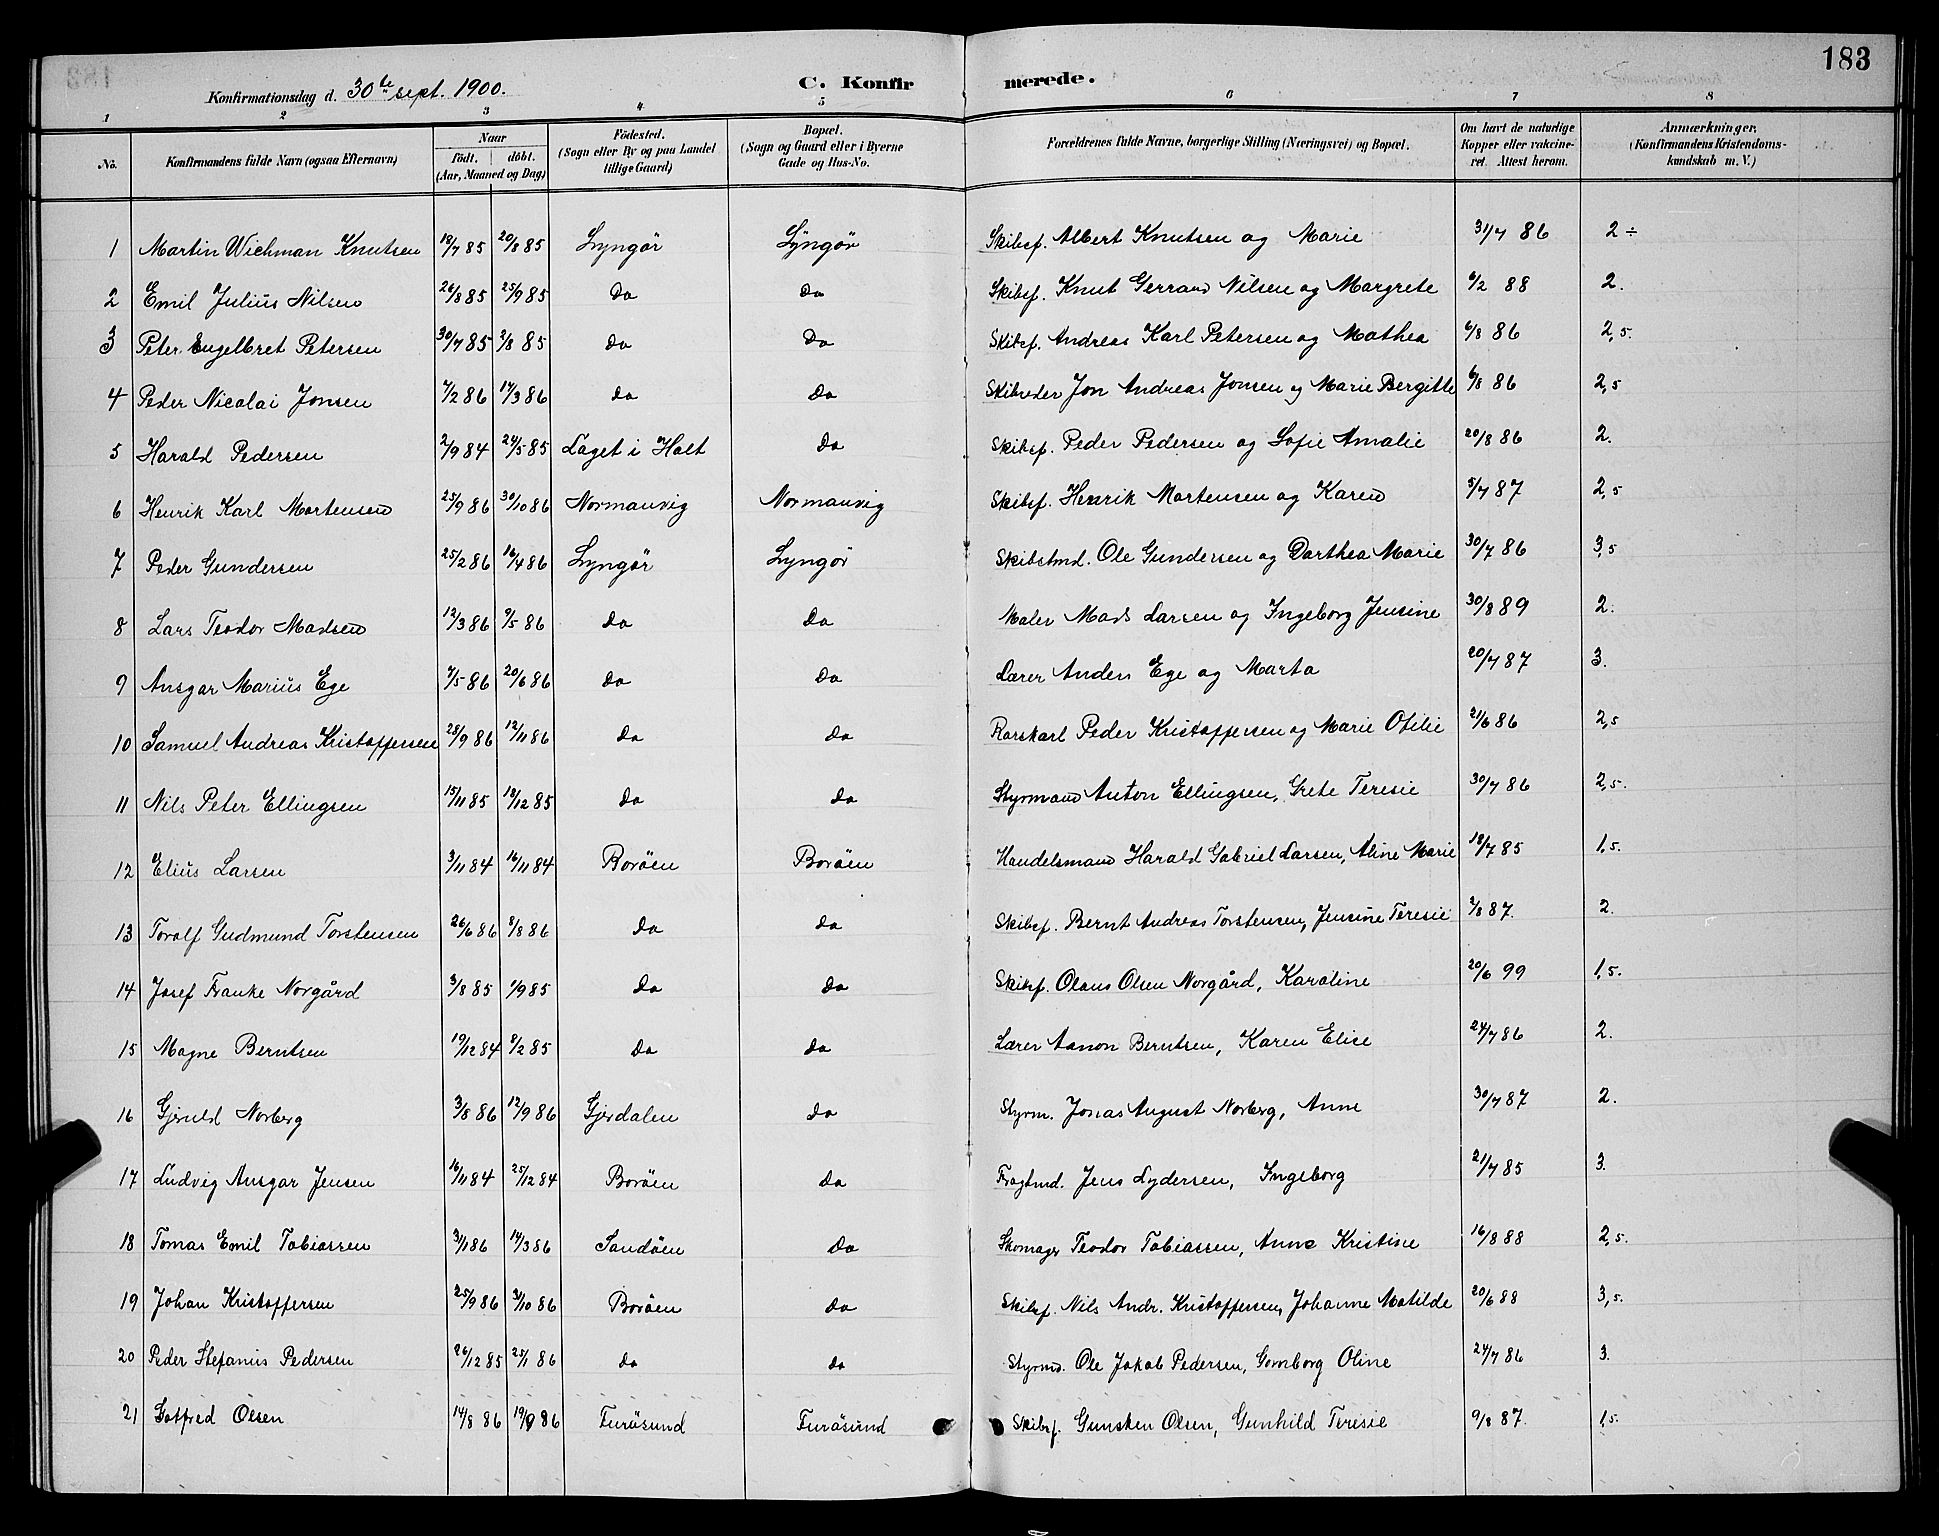 183
Konfirmationsdag d. 30te sept. 1900. C. Konfirmerede.
1 2 3 4 5 6 7 8
No. Konfirmandens fulde Navn (ogsaa Efternavn) Naar født. døbt. (Aar, Maaned og Dag) Fødested. (Sogn eller By og paa Landet tillige Gaard) Bopæl. (Sogn og Gaard eller i Byerne Gade og Hus-No. Forældrenes fulde Navne, borgerlige Stilling (Næringsvei) og Bopæl. Om havt de naturlige Kopper eller vakcineret. Attest herom. Anmærkninger. (Konfirmandens Kristendomskundskab m. V.)
1 Martin Wichman Knutsen 19/7 85 20/8 85 Lyngör Lyngör Skibsf. Albert Knutsen og Marie 31/7 86 2 ÷
2 Emil Julius Nilsen 26/8 85 25/9 85 do do Skibsf. Knut Gerrand Nilsen og Margrete 6/2 88 2.
3 Peter Engelbret Petersen 30/7 85 2/8 85 do do Skibsf. Andreas Karl Petersen og Mathea 6/8 86 2,5.
4 Peder Nicolai Jonsen 7/2 86 14/3 86 do do Skibreder Jon Andreas Jonsen og Marie Bergitte 6/8 86 2,5
5 Harald Pedersen 2/9 84 24/5 85 Laget i Holt do Skibsf. Peder Pedersen og Sofie Amalie 20/8 86 2.
6 Henrik Karl Mortensen 25/9 86 30/10 86 Normanvig Normanvig Skibsf. Henrik Mortensen og Karen 5/7 87 2,5
7 Peder Gundersen 25/2 86 16/4 86 Lyngör Lyngör Skibstmd. Ole Gundersen og Dorthea Marie 30/7 86 3,5
8 Lars Teodor Madsen 12/3 86 9/5 86 do do Maler Mads Larsen og Ingeborg Jensine 30/8 89 2.
9 Ansgar Marius Ege 7/5 86 20/6 86 do do Lærer Anders Ege og Marta 20/7 87 3.
10 Samuel Andreas Kristoffersen 28/9 86 12/11 86 do do Rorskarl Peder Kristoffersen og Marie Otilie 21/6 86 2,5
11 Nils Peter Ellingsen 15/11 85 18/12 85 do do Styrmand Anton Ellingsen, Grete Teresie 30/7 86 2,5.
12 Elius Larsen 3/11 84 16/11 84 Boröen Boröen Handelsmand Harald Gabriel Larsen, Aline Marie 18/7 85 1,5.
13 Toralf Gudmund Torstensen 26/6 86 8/8 86 do do Skibsf. Bernt Andreas Torstensen, Jensine Teresie 2/8 87. 2.
14 Josef Franke Norgård 3/8 85 1/9 85 do do Skibsf. Olaus Olsen Norgård, Karoline 20/6 99 1,5.
15 Magne Berntsen 19/12 84 8/2 85 do do Lærer Aanon Berntsen, Karen Elise 24/7 86 2.
16 Gjeruld Norberg 3/8 86 12/9 86 Gjerdalen do Styrm. Jonas August Norberg, Anne 30/7 87 2.
17 Ludvig Ansgar Jensen 16/11 84 25/12 84 Boröen do Fragtmd. Jens Lydersen, Ingeborg 21/7 85 3.
18 Tomas Emil Tobiassen 31/1 86 14/3 86 Sandöen do Skomager Teodor Tobiassen, Anne Kristine 16/8 88 2,5.
19 Johan Kristoffersen 25/9 86 3/10 86 Boröen do Skibsf. Nils Andr. Kristoffersen, Johanne Matilde 20/6 88 3,5.
20 Peder Stefanus Pedersen 26/12 85 25/1 86 do do Styrmd. Ole Jakob Pedersen, Gomborg Oline 24/7 86 3.
21 Gotfred Olsen 14/8 86 19/9 86 Furösund Furösund Skibsf. Gunsten Olsen, Gunhild Teresie 9/8 87. 1,5.